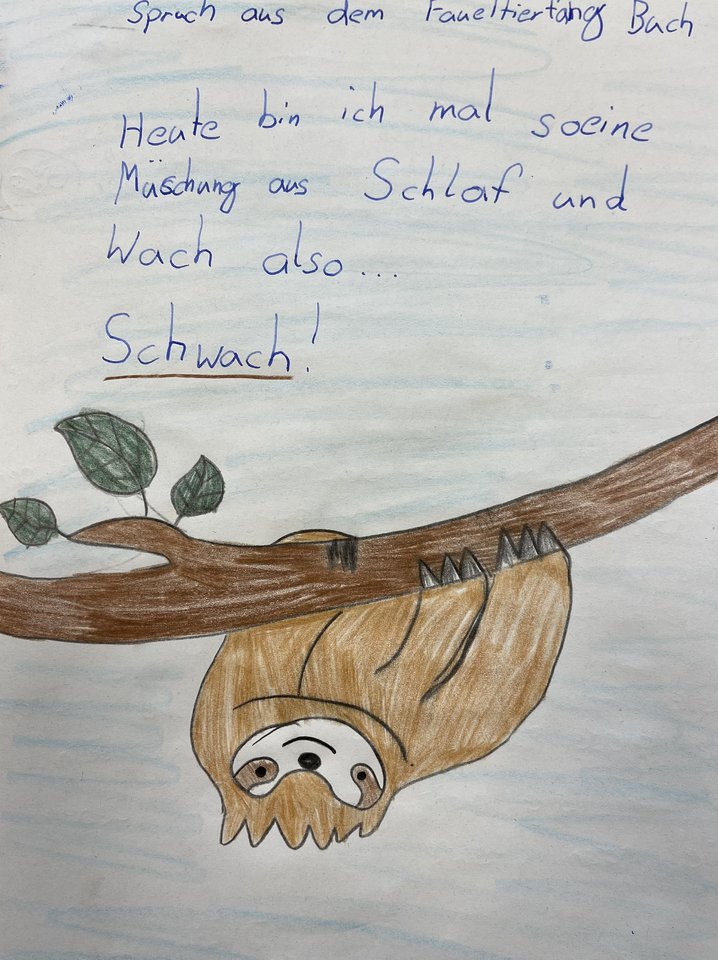 Spruch aus dem Faueltiertäng Buch
Heute bin ich mal soeine
Müschung aus Schlaf und
Wach also...
Schwach!